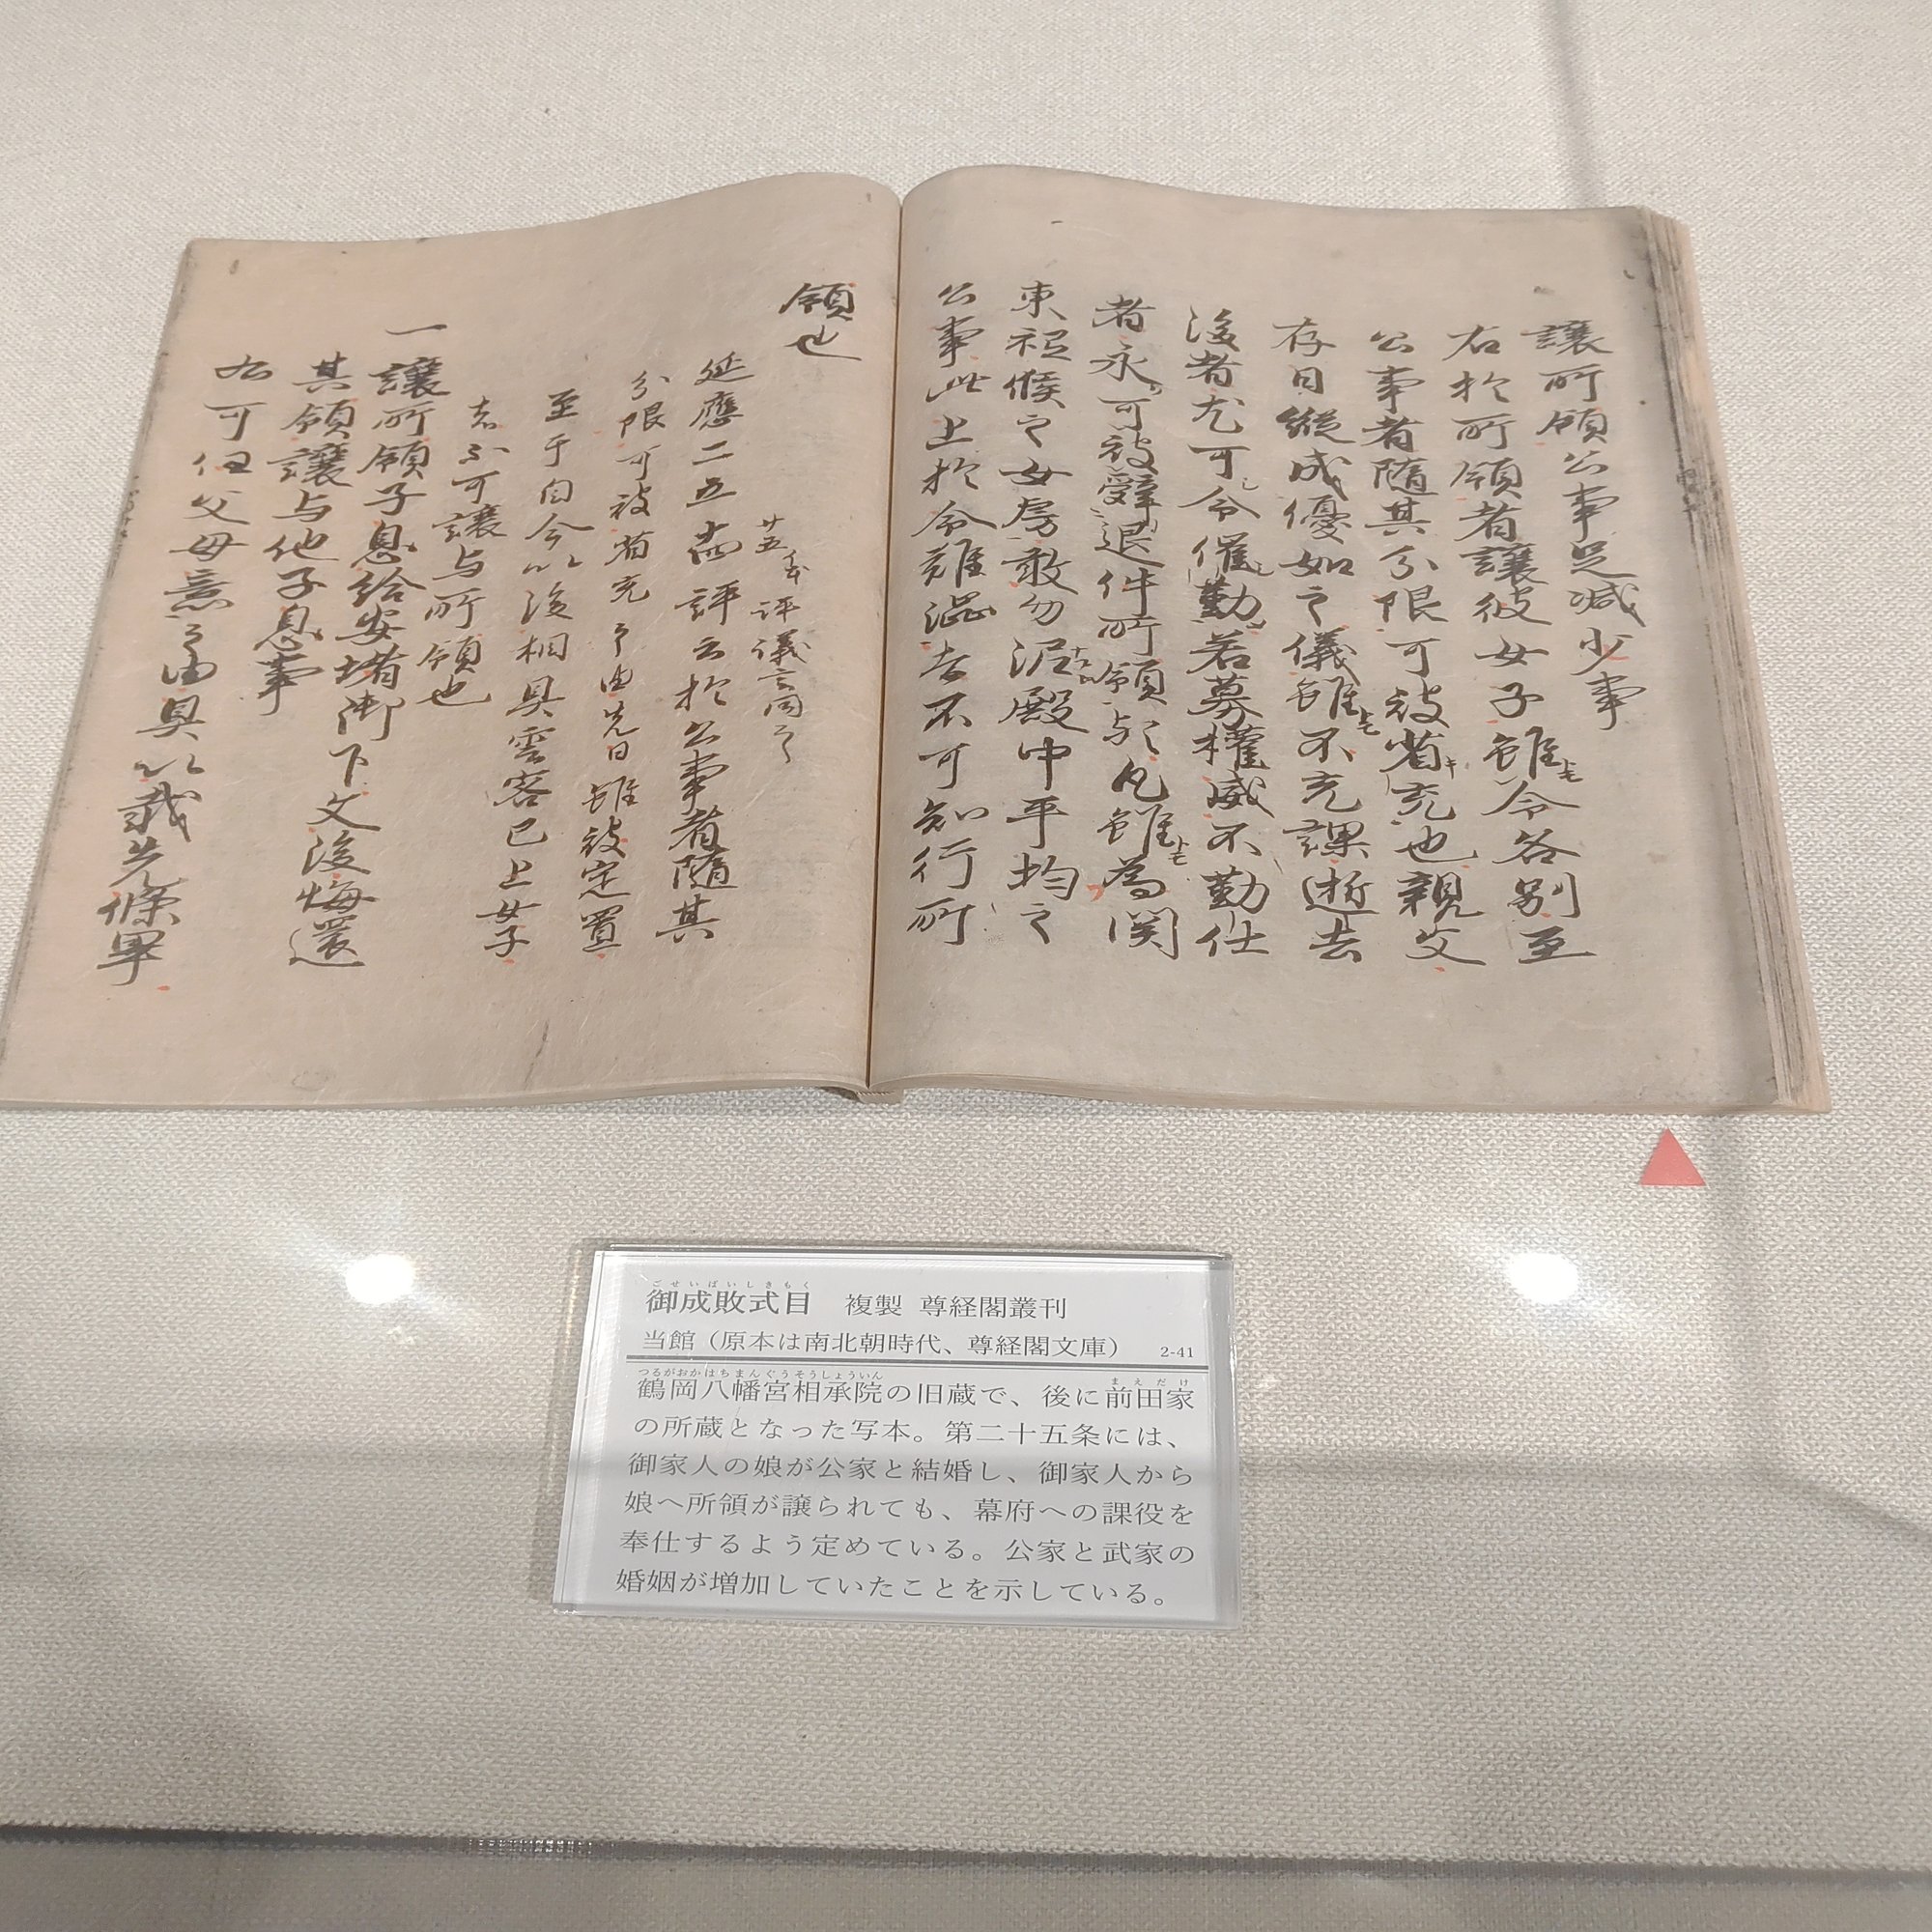 譲所領公事足減少事
右於所領者譲彼女子雖トモ令各別至
公事者随其分限可被省キ充也親父
存日縦成優如之儀雖トモ不充課逝去
後者尤可令催勤若募権威不勤仕
者永可被辞退件所領歟凡雖トモ為関
東祗候之女房敢勿泥殿中平均之
公事此上於令難渋者不可知行所
領也
廿五 評議云同之
延應二五 評云於公事者随其
分限可被省充之由先日雖被定置
至于自今以後相具雲客已上女子
者不可譲与所領也
一譲所領子息給安堵御下文後悔還
其領譲与他子息事
右可任父母意之由具以載先條畢
ごせいばいしきもく
御成敗式目 複製 尊経閣叢刊
当館（原本は南北朝時代、尊経閣文庫） 2-41
つるがおかはちまんぐうそうしょういん まえだけ
鶴岡八幡宮相承院の旧蔵で、後に前田家
の所蔵となった写本。第二十五条には、
御家人の娘が公家と結婚し、御家人から
娘へ所領が譲られても、幕府への課役を
奉仕するよう定めている。公家と武家の
婚姻が増加していたことを示している。